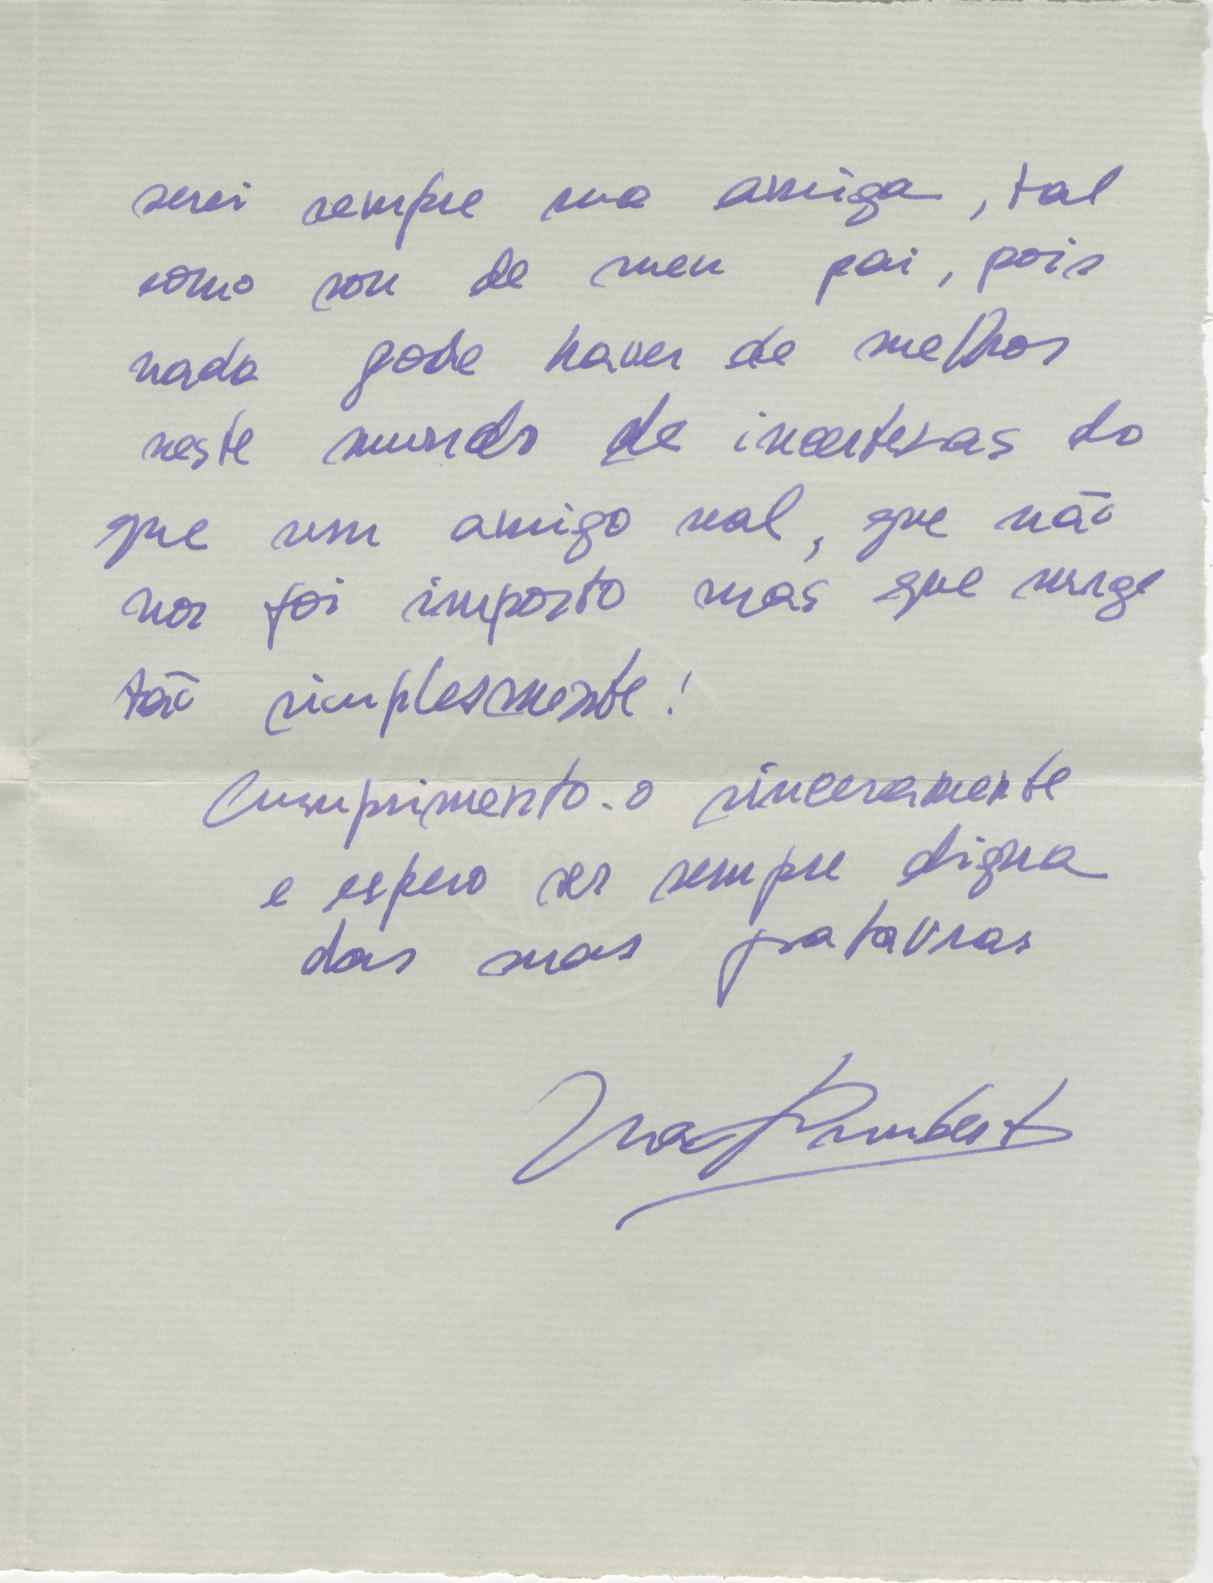 serei sempre sua amiga, tal
como sou de meu pai, pois
nada pode haver de melhor
neste mundo de incertesas do
que um amigo real, que não
nos foi imposto mas que surge
tão simplesmente!
Cumprimento-o sinceramente
e espero ser sempre digna
das suas palavras